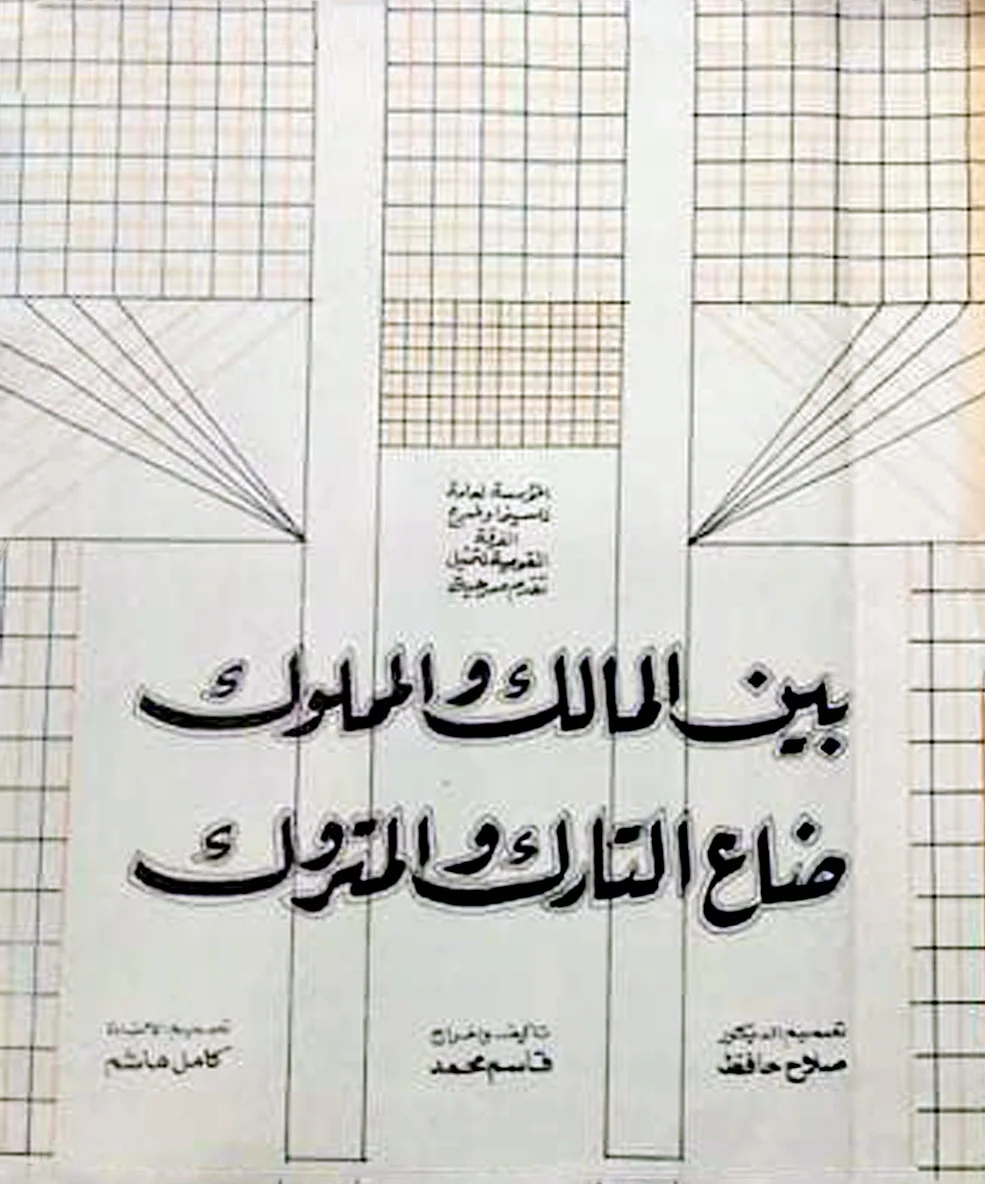 المؤسسة العامة
للسينما والمسرح
الفرقة
القومية للتمثيل
تقدم مسرحية
بين المالك والمملوك
ضاع التارك والمتروك
تصميم الديكور
صلاح حافظ
تأليف واخراج
قاسم محمد
تصميم الاضاءة
كامل هاشم